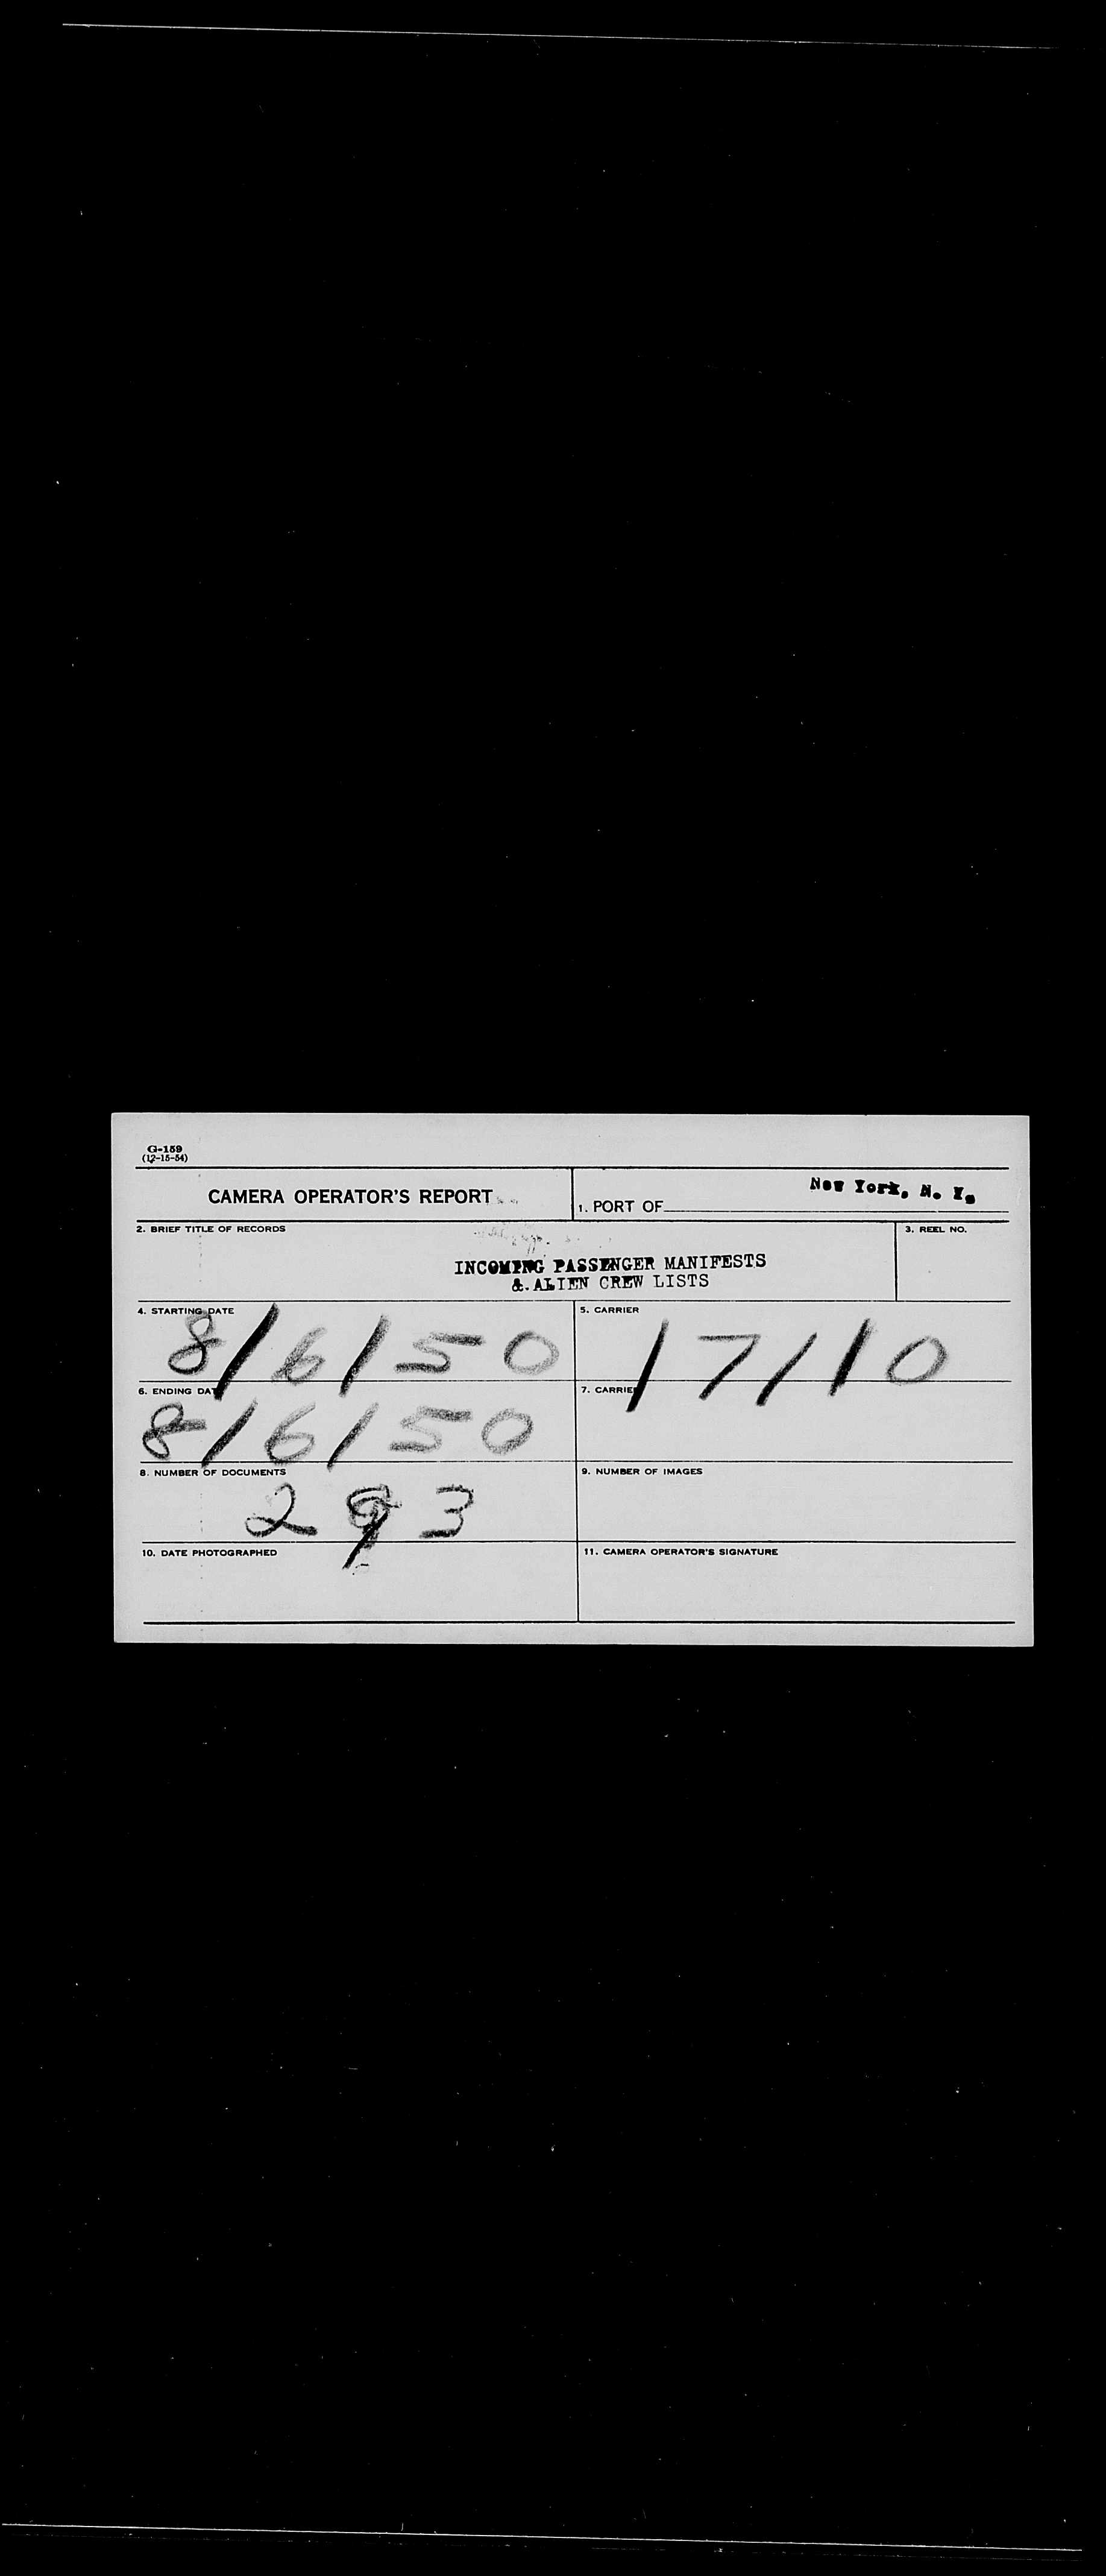 G-159
(12-15-54)
CAMERA OPERATOR'S REPORT
1. PORT OF New York, N. Y.
2. BRIEF TITLE OF RECORDS
3. REEL NO.
INCOMING PASSENGER MANIFESTS
& ALIEN CREW LISTS
4. STARTING DATE
8/6/50
5. CARRIER
17110
6. ENDING DATE
8/6/50
7. CARRIER
8. NUMBER OF DOCUMENTS
293
9. NUMBER OF IMAGES
10. DATE PHOTOGRAPHED
11. CAMERA OPERATOR'S SIGNATURE